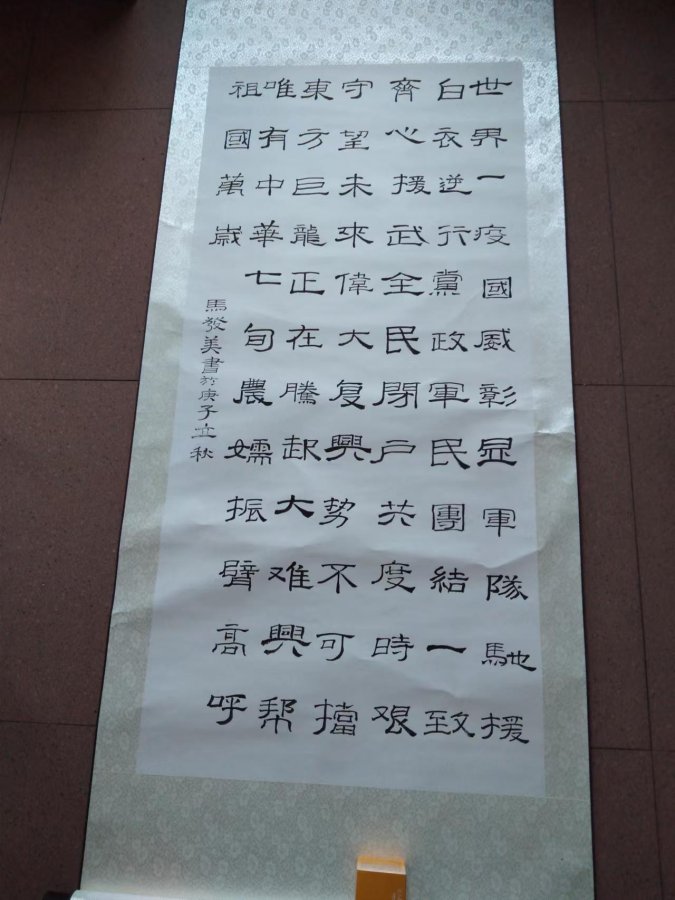 世界一疫國威彰显軍隊馳援
白衣逆行黨政軍民團結一致
齊心援武全民閉户共度時艰
守望未來偉大复興势不可擋
東方巨龍正在騰起大难興邦
唯有中華七旬農孺振臂高呼
祖國萬歳
馬發美書於庚子立秋